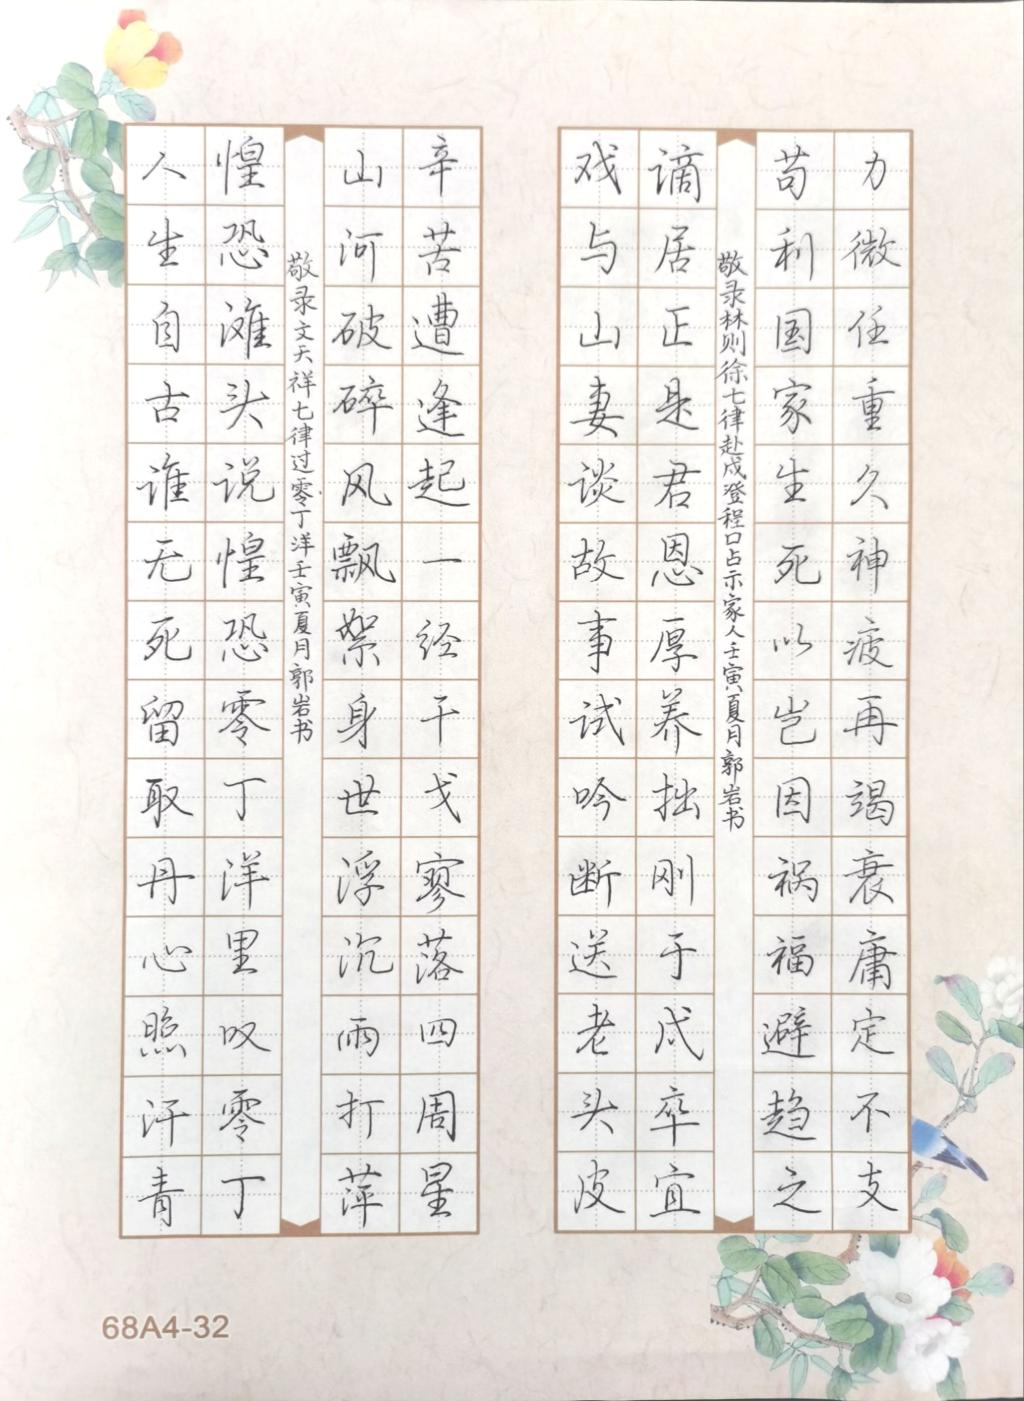 力微任重久神疲再竭衰庸定不支
苟利国家生死以岂因祸福避趋之
敬录林则徐七律赴戍登程口占示家人壬寅夏月郭岩书
谪居正是君恩厚养拙刚于戍卒宜
戏与山妻谈故事试吟断送老头皮
辛苦遭逢起一经干戈寥落四周星
山河破碎风飘絮身世浮沉雨打萍
敬录文天祥七律过零丁洋壬寅夏月郭岩书
惶恐滩头说惶恐零丁洋里叹零丁
人生自古谁无死留取丹心照汗青
68A4-32